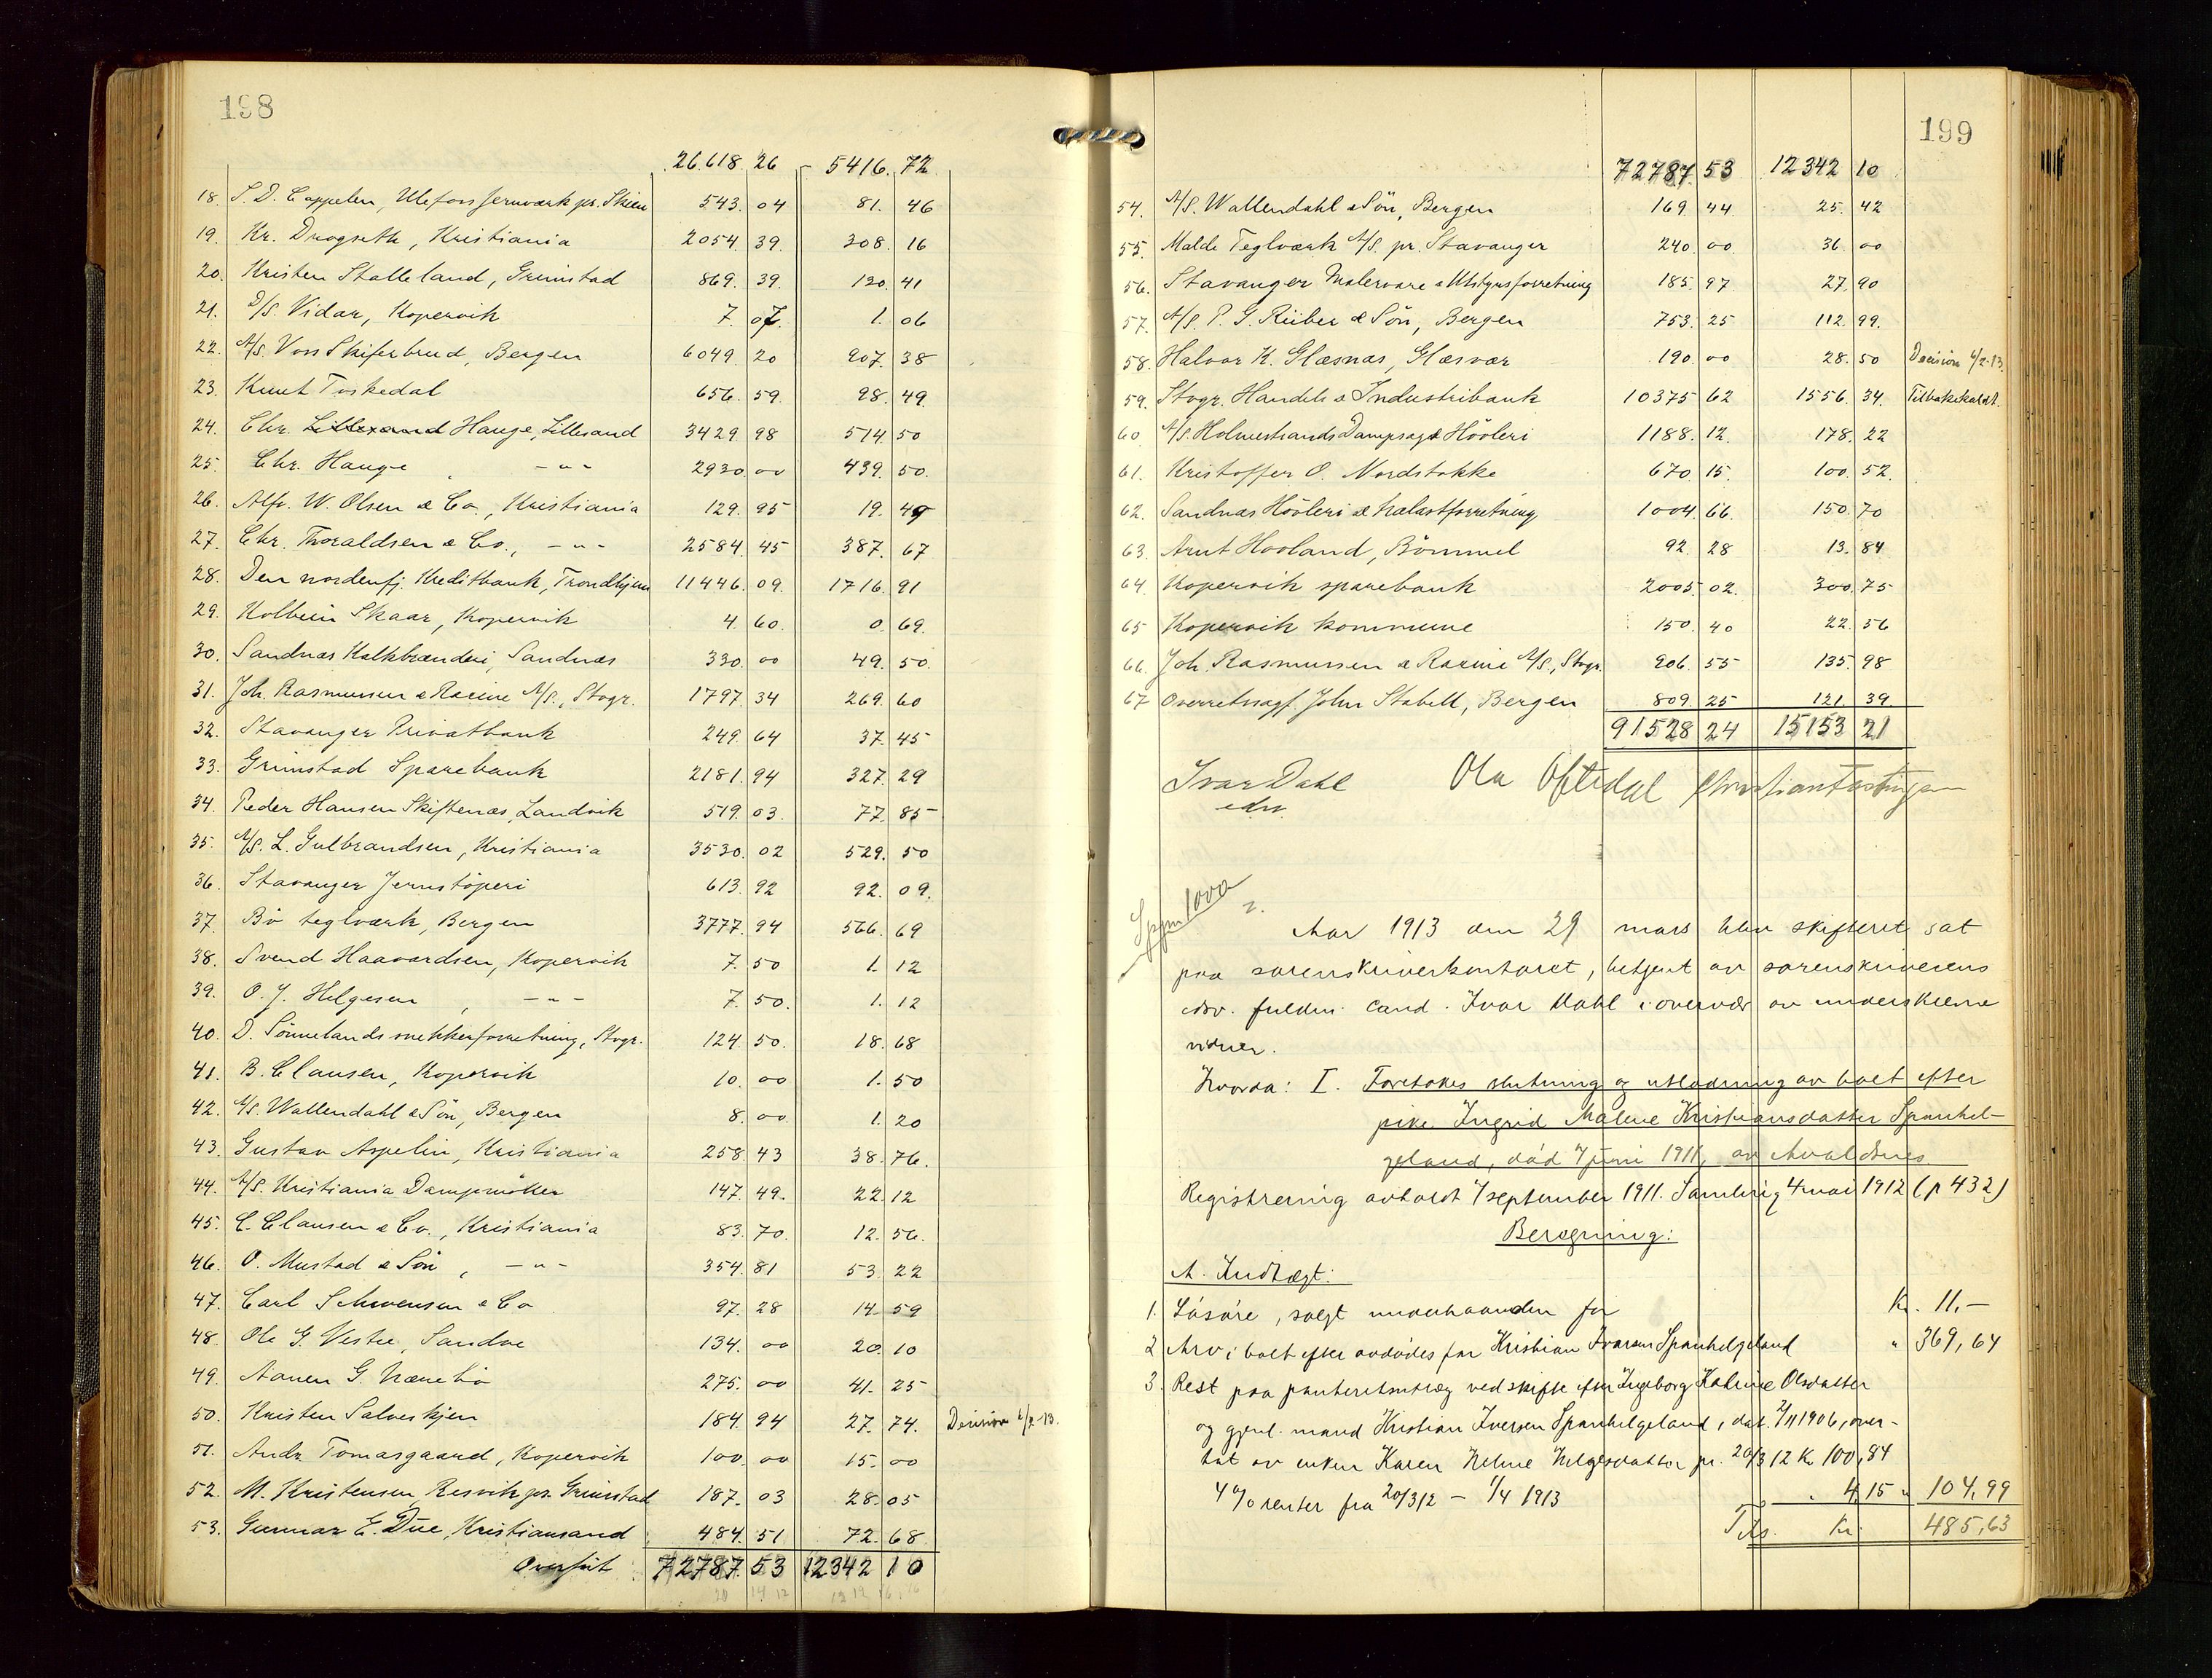 198
26618. 26 5416. 72
18. S. D. Cappelen, Ulefoss Jernværk pr. Skien 543. 04 81. 46
19. Kr. Drogseth, Kristiania 2054. 39. 308. 16
20. Kristen Stalleland, Grimstad 869. 39. 130. 41
21. D/S. Vidar, Kopervik 7. 07. 1. 06
22. A/S. Voss Skiferbrud, Bergen 6049. 20 907. 38
23. Knut Toskedal 656. 59. 98. 49.
24. Chr. Lillesand Hauge, Lillesand 3429. 98 514. 50
25. Chr. Hauge, -"- 2930. 00 439. 50.
26. Alf. W. Olsen & Co., Kristiania 129. 95 19. 49
27. Chr. Thoraldsen & Co., -"- 2584. 45 387. 67
28. Den nordenfj. Kreditbank, Trondhjem 11446. 09. 1716. 91
29. Kolbein Skaar, Kopervik 4. 60. 0. 69.
30. Sandnæs Kalkbrænderi, Sandnæs 330. 00 49. 50.
31. Joh. Rasmussen & Racine A/S., Stvgr. 1797. 34 269. 60
32. Stavanger Privatbank 249. 64 37. 45
33. Grimstad Sparebank 2181. 94 327. 29
34. Peder Hansen Skiftenæs, Landvik 519. 03. 77. 85
35. A/S. L. Gulbrandsen, Kristiania 3530. 02 529. 50
36. Stavanger Jernstöperi 613. 92 92. 09.
37. Bö teglværk, Bergen 3777. 94 566. 69
38. Svend Haavardsen, Kopervik 7. 50 1. 12
39. O. J. Helgesen, -"- 7. 50. 1. 12
40. D. Sönnelands snekkerforretning, Stvgr. 124. 50. 18. 68
41. B. Clausen, Kopervik 10. 00 1. 50
42. A/S. Wallendahl & Sön, Bergen 8. 00 1. 20
43. Gustav Aspelin, Kristiania 258. 43 38. 76.
44. A/S. Kristiania Dampmöller 147. 49. 22. 12
45. C. Clausen & Co., Kristiania 83. 70. 12. 56.
46. O. Mustad & Sön, -"- 354. 81 53. 22
47. Carl Schwensen & Co 97. 28 14. 59
48. Ole G. Vestre, Sandve 134. 00 20. 10
49. Aanen G. Næuebö 275. 00 41. 25
50. Kristen Salveskjen 184. 94 27. 74. Decision 6/2-13.
51. Andr. Tomasgaard, Kopervik 100. 00 15. 00
52. M. Kristensen, Resvik pr. Grimstad 187. 03 28. 05
53. Gunnar E. Due, Kristiansand 484. 51 72. 68
Overfört 72787. 53 12342 10
199
72787. 53 12342 10
54. A/S. Wallendahl & Sön, Bergen 169. 44. 25. 42
55. Malde Teglværk A/S. pr. Stavanger 240. 00 36. 00
56. Stavanger Malervare & Utstyrsforretning 185. 97 27. 90
57. A/S. P. G. Rieber & Sön, Bergen 753. 25 112. 99.
58. Halvor K. Glæsnæs, Glæsvær 190. 00 28. 50 Decision 6/2-13.
59. Stvgr. Handels & Industribank 10375 62 1556. 34. Tilbakekaldt.
60. A/S. Holmestrands Dampsag & Hövleri 1188. 12. 178. 22
61. Kristoffer O. Nordstokke 670. 15. 100. 52.
62. Sandnæs Hövleri & Trælastforretning 1004. 66. 150. 70
63. Arnt Hovland, Bömmel 92. 28 13. 84
64. Kopervik sparebank 2005. 02. 300. 75
65 Kopervik kommune 150. 40 22. 56
66. Joh. Rasmussen & Racine A/S., Stvgr. 906. 55 135. 98
67 Overretssagf. John Stabell, Bergen 809. 25 121. 39.
91528 24 15153 21
Ivar Dahl Ola Oftedal Christian Fastingsen
edsv.
1000
Aar 1913 den 29 mars blev skifteret sat
paa sorenskriverkontoret, betjent av sorenskriverens
edsv. fuldm. cand. Ivar Dahl i overvær av underskrevne
vidner.
Hvorda: I. Foretokes slutning og utlodning av boet efter
pike Ingrid Malene Kristiansdatter Spanhel-
geland, död 7 juni 1911, av Avaldsnes
Registrering avholdt 7 september 1911. Samling 4 mai 1912 (p 432)
Beregning:
A. Indtægt:
1. Lösöre, solgt underhaanden for Kr. 11,-
2 Arv i boet efter avdödes far Kristian Ivarsen Spanhelgeland " 369,64
3. Rest paa panteretsutlæg ved skifte efter Ingeborg Katrine Olsdatter
og gjenl. mand Kristian Iversen Spanhelgeland, dat. 21/11 1906, over-
tat av enken Karen Helene Helgesdatter pr. 20/3 12 Kr 100,84
4% renter fra 20/3 12 - 1/4 1913 " 4,15 " 104,99
Tils. Kr. 485,63